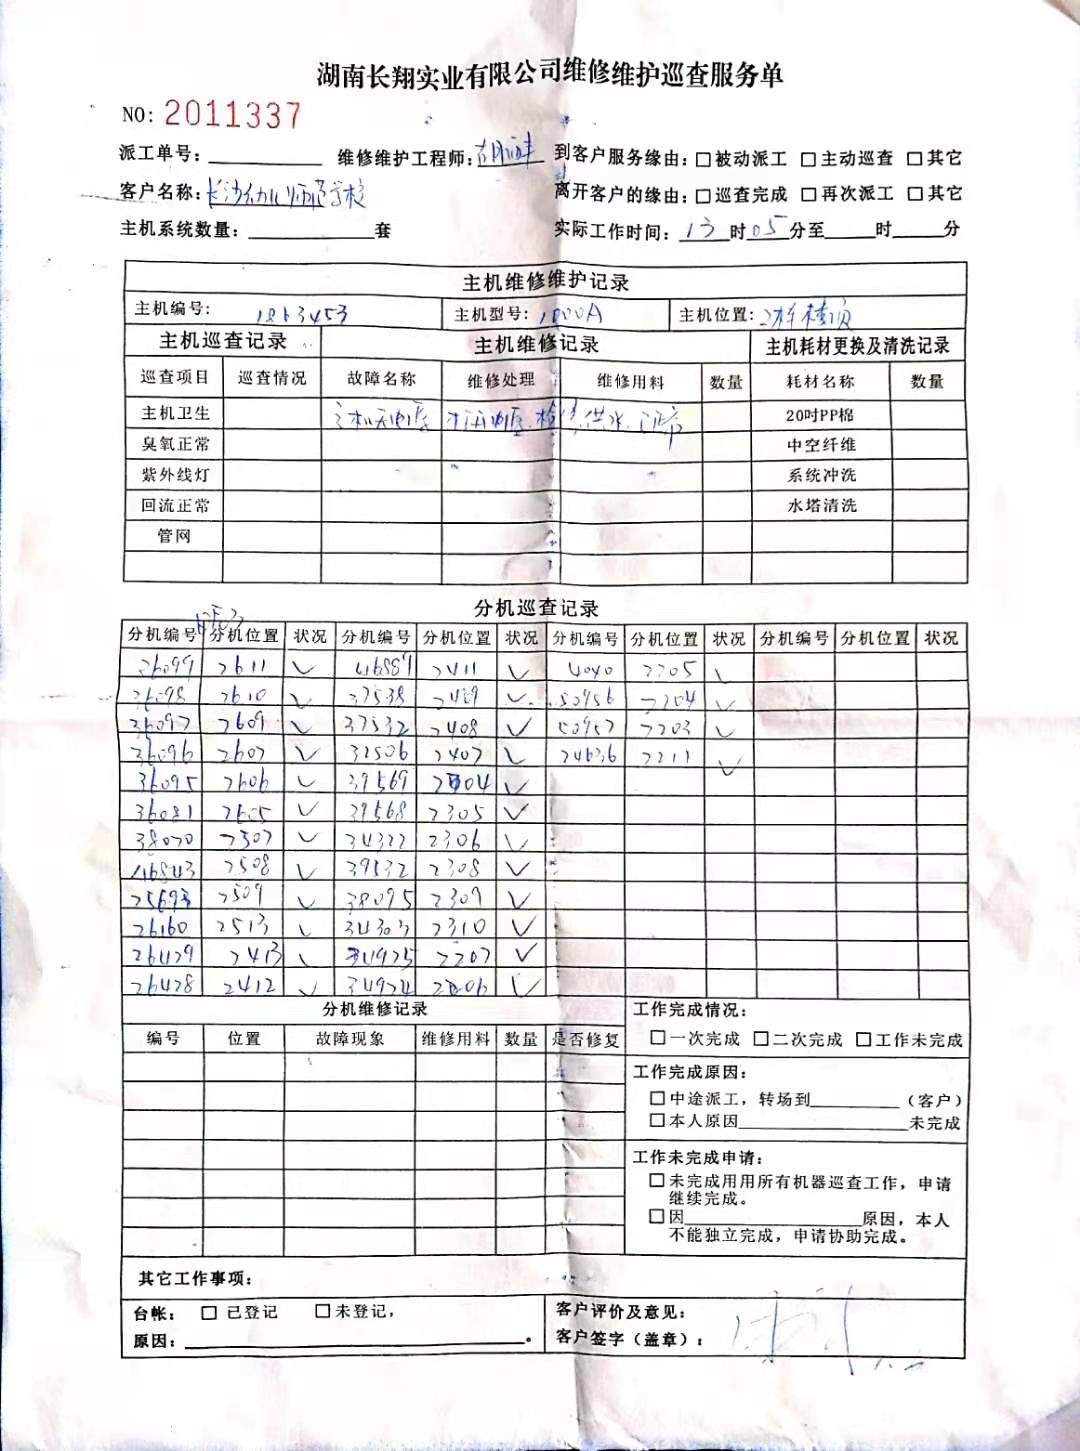 湖南长翔实业有限公司维修维护巡查服务单
NO: 2011337
派工单号: 维修维护工程师: 到客户服务缘由: □被动派工 □主动巡查 □其它
客户名称: 长沙幼儿师范学校 离开客户的缘由: □巡查完成 □再次派工 □其它
主机系统数量: 套 实际工作时间: 13时05分至 时 分
主机维修维护记录
主机编号: 1813453 主机型号: 1800A 主机位置: 2栋楼顶
主机巡查记录 主机维修记录 主机耗材更换及清洗记录
巡查项目 巡查情况 故障名称 维修处理 维修用料 数量 耗材名称 数量
主机卫生 主机无电压 检 供水 正常 20吋PP棉
臭氧正常 中空纤维
紫外线灯 系统冲洗
回流正常 水塔清洗
管网
分机巡查记录
分机编号 分机位置 状况 分机编号 分机位置 状况 分机编号 分机位置 状况 分机编号 分机位置 状况
26099 2611 ✓ 46889 2411 ✓ 4040 2205 ✓
26098 2610 ✓ 37538 2409 ✓ 50956 2204 ✓
26097 2609 ✓ 37532 2408 ✓ 50957 2203 ✓
36096 2607 ✓ 32506 2407 ✓ 24636 2211 ✓
36095 2606 ✓ 39569 2404 ✓
36081 2605 ✓ 39568 2305 ✓
38070 2507 ✓ 34322 2306 ✓
46843 2508 ✓ 39532 2308 ✓
25693 2509 ✓ 38095 2309 ✓
26160 2513 ✓ 34303 2310 ✓
26429 2413 ✓ 34925 2207 ✓
26428 2412 ✓ 34924 2206 ✓
分机维修记录
编号 位置 故障现象 维修用料 数量 是否修复
工作完成情况:
□一次完成 □二次完成 □工作未完成
工作完成原因:
□中途派工，转场到 （客户）
□本人原因 未完成
工作未完成申请:
□未完成用用所有机器巡查工作，申请
继续完成。
□因 原因，本人
不能独立完成，申请协助完成。
其它工作事项:
台帐: □ 已登记 □未登记，
原因: 。
客户评价及意见:
客户签字（盖章）: